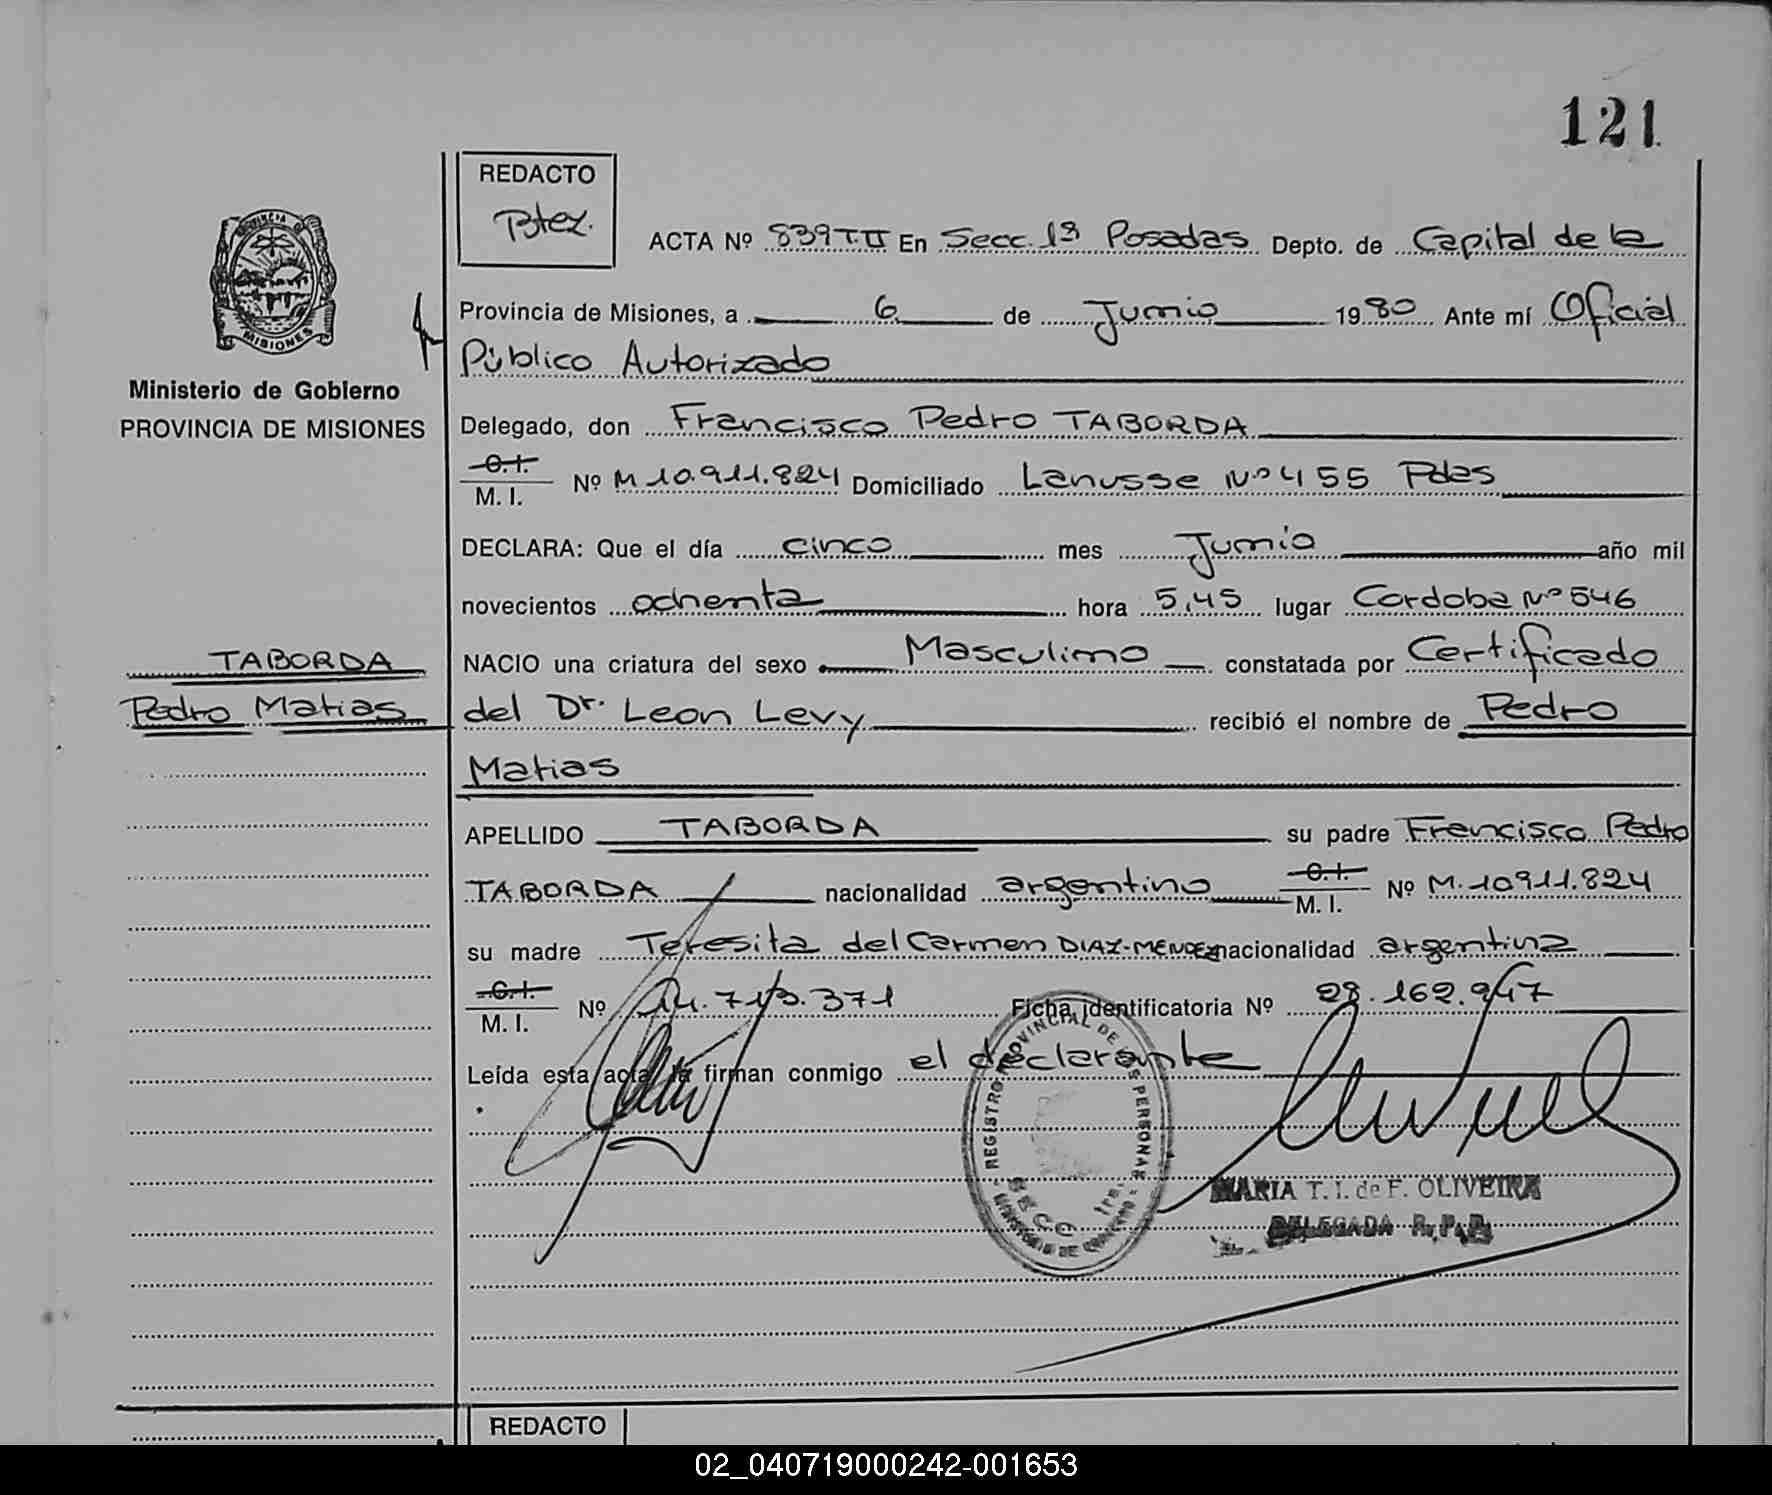 121
REDACTO
Btez.
ACTA Nº 839 T.II En Secc. 1ª Posadas Depto. de Capital de la
Provincia de Misiones, a 6 de Junio 1980 Ante mí Oficial
Público Autorizado
Delegado, don Francisco Pedro TABORDA
C.I.
M. I. Nº M 10.911.824 Domiciliado Lanusse Nº 455 Pdas
DECLARA: Que el día cinco mes Junio año mil
novecientos ochenta hora 5,45 lugar Cordoba Nº 546
NACIO una criatura del sexo Masculino constatada por Certificado
del Dr. Leon Levy recibió el nombre de Pedro
Matias
APELLIDO TABORDA su padre Francisco Pedro
TABORDA nacionalidad argentino C.I.
M. I. Nº M. 10911.824
su madre Teresita del Carmen DIAZ-MENDEZ nacionalidad argentina
C.I.
M. I. Nº 14.713.371 Ficha identificatoria Nº 28.162.947
Leída esta acta la firman conmigo el declarante
REGISTRO PROVINCIAL DE LAS PERSONAS
SECC 1ra.
MINISTERIO DE GOBIERNO
MARIA T. I. de F. OLIVEIRA
DELEGADA R. P. P.
PROVINCIA DE
MISIONES
Ministerio de Gobierno
PROVINCIA DE MISIONES
TABORDA
Pedro Matias
REDACTO
02_040719000242-001653